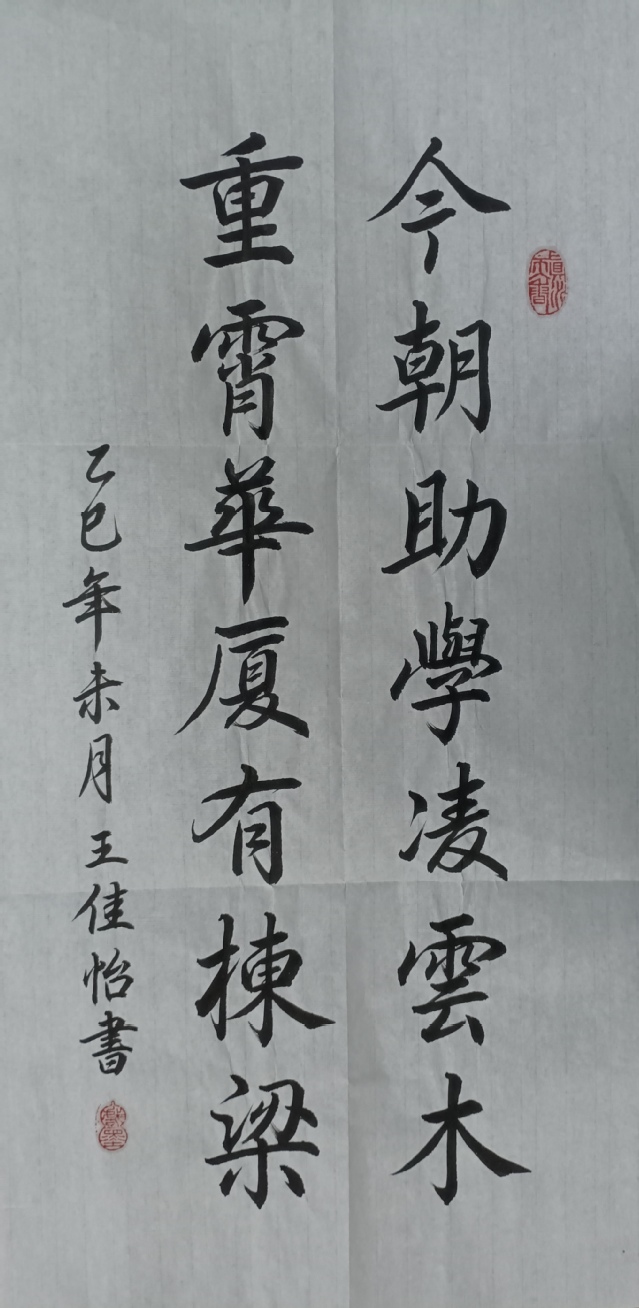 今朝助學凌雲木
重霄華厦有棟梁
乙巳年未月王佳怡書